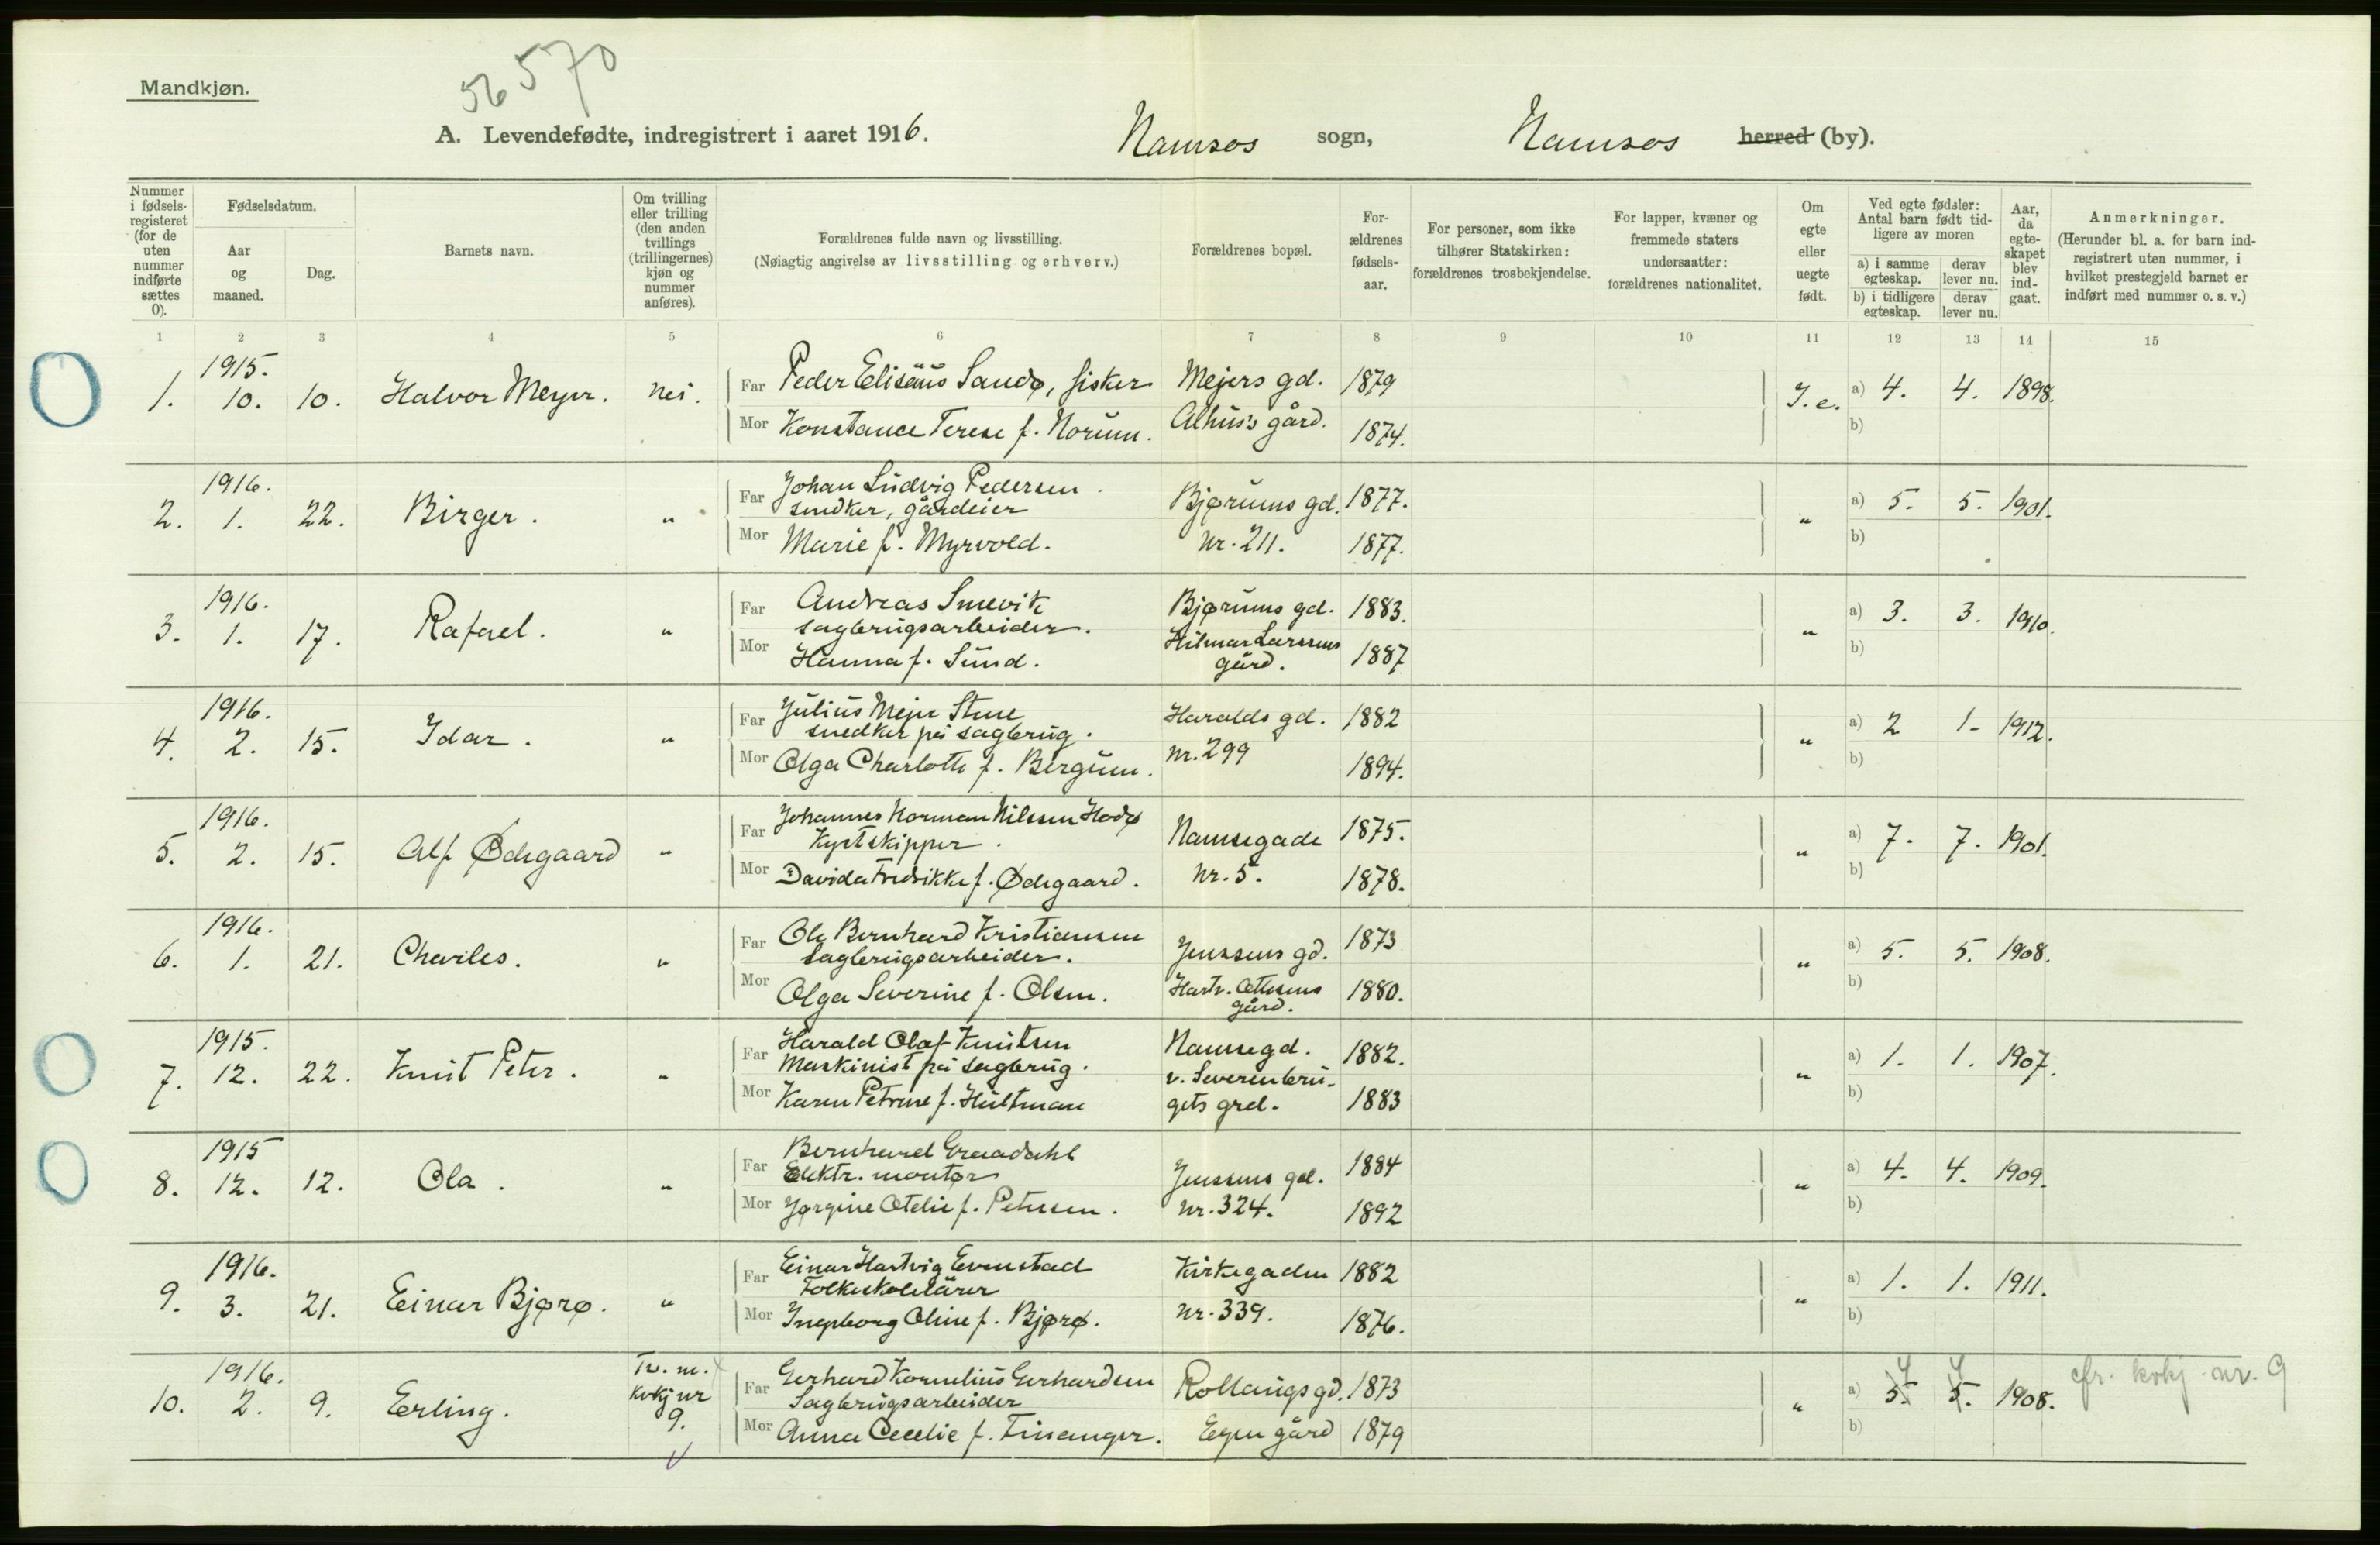 Mandkjøn.
56570
A. Levendefødte, indregistrert i aaret 1916. Namsos sogn, Namsos herred (by).
Nummer i fødsels-registeret (for de uten nummer indførte sættes 0).
Fødselsdatum.
Aar og maaned.
Dag.
Barnets navn.
Om tvilling eller trilling (den anden tvillings (trillingernes) kjøn og nummer anføres).
Forældrenes fulde navn og livsstilling.
(Nøiagtig angivelse av livsstilling og erhverv.)
Forældrenes bopæl.
For-ældrenes fødsels-aar.
For personer, som ikke tilhører Statskirken: forældrenes trosbekjendelse.
For lapper, kvæner og fremmede staters undersaatter: forældrenes nationalitet.
Om egte eller uegte født.
Ved egte fødsler: Antal barn født tid-ligere av moren
a) i samme egteskap. derav lever nu.
b) i tidligere egteskap. derav lever nu.
Aar, da egte-skapet blev ind-gaat.
Anmerkninger.
(Herunder bl. a. for barn ind-registrert uten nummer, i hvilket prestegjeld barnet er indført med nummer o. s. v.)
1 2 3 4 5 6 7 8 9 10 11 12 13 14 15
1915.
1. 10. 10. Halvor Meyer. nei. Far Peder Elisäus Sandø, fisker Mejers gd. 1879 I. e. a) 4. 4. 1898.
Mor Konstance Terese f. Norum. Alhus's gård. 1874. b)
1916.
2. 1. 22. Birger. " Far Johan Ludvig Pedersen
snedker, gårdeier Bjørums gd. 1877. " a) 5. 5. 1901.
Mor Marie f. Myrvold. nr. 211. 1877. b)
1916.
3. 1. 17. Rafael. " Far Andreas Smevik Bjørums gd. 1883. " a) 3. 3. 1910.
sagbrugsarbeider.
Mor Hanna f. Sund. Hilmar Larssens gård. 1887 b)
1916.
4. 2. 15. Idar. " Far Julius Mejer Stene Haralds gd. 1882 " a) 2 1- 1912.
snedker på sagbrug.
Mor Olga Charlotte f. Bergum. nr. 299 1894. b)
1916.
5. 2. 15. Alf Ødegaard " Far Johannes Norman Nilssen Hodø
Kystskipper. Namsegade 1875. " a) 7. 7. 1901.
Mor Davida Fredrikke f. Ødegaard. nr. 5. 1878. b)
1916.
6. 1. 21. Charles. " Far Ole Bernhard Kristiansen
sagbrugsarbeider. Jenssens gd. 1873 " a) 5. 5. 1908.
Mor Olga Severine f. Olsen. Hartv. Ottesens gård. 1880. b)
1915.
7. 12. 22. Knut Peter. " Far Harald Olaf Knutsen Namsegd. 1882. " a) 1. 1. 1907.
Maskinist på sagbrug. v. Severenbru-
Mor Karen Petrine f. Hultman gets grd. 1883 b)
1915
8. 12. 12. Ola. " Far Bernhard Graadahl
Elektr. montør Jenssens gd. 1884 " a) 4. 4. 1909.
Mor Jørgine Otelie f. Petersen. nr. 324. 1892 b)
1916.
9. 3. 21. Einar Bjørø. " Far Einar Hartvig Evenstad Kirkegaden 1882 " a) 1. 1. 1911.
Folkeskolelärer
Mor Ingeborg Oline f. Bjørø. nr. 339. 1876. b)
1916.
10. 2. 9. Erling. Tv. m. kvkj nr 9. Far Gerhard Kornelius Gerhardsen Rollaugs gd. 1873 " a) 5. 4 5. 4 1908. cfr. kvkj. nr. 9
Sagbrugsarbeider
Mor Anna Cecelie f. Finanger. Egen gård 1879 b)